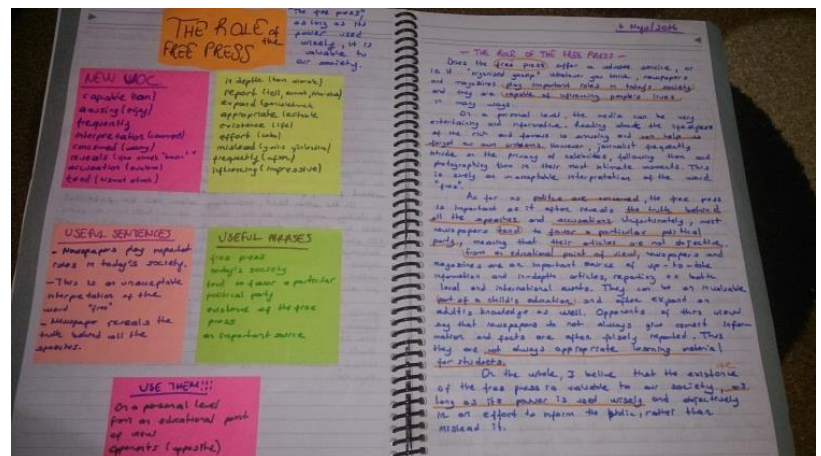 THE ROLE of
the
FREE PRESS
"the free press",
as long as its
power used
wisely, it is
valuable to
our society.
NEW VOC
capable
amusing
frequently
interpretation
concerned
reveals
accusation
tend
in depth
report
expand
appropriate
existence
effort
mislead
frequently (often)
influencing (impressive)
USEFUL SENTENCES
- Newspapers play important
roles in today's society.
- This is an unacceptable
interpretation of the
word "free"
- Newspaper reveals the
truth behind all the
speeches.
USEFUL PHRASES
free press
today's society
tend to favor a particular
political party
existence of the free
press
an important source
USE THEM!!!
On a personal level
from an educational point
of view
opponents (opposite)
- THE ROLE OF THE FREE PRESS -
Does the free press offer a valuable service, or
is it "organised gossip" whatever you think, newspapers
and magazines play important roles in today's society
and they are capable of influencing people's lives
in many ways.
On a personal level, the media can be very
entertaining and informative. Reading about the
of the rich and famous is amusing and can help us
forget our own problems. However, journalist frequently
intrude on the privacy of celebrities, following them and
photographing them in their most intimate moments. This
is surely an unacceptable interpretation of the word
"free".
As far as politics are concerned, the free press
is important as it often reveals the truth behind
all the speeches and accusations. Unfortunately, most
newspapers tend to favor a particular political
party, meaning that their articles are not objective.
From an educational point of view, newspapers and
magazines are an important source of up-to-date
information and in-depth articles, reporting on both
local and international events. They can be an invaluable
part of a child's education and often expand an
adult's knowledge as well. Opponents of this view
say that newspapers do not always give correct infor
mation and facts are often falsely reported. Thus
they are not always appropriate learning material
for students.
On the whole, I believe that the existence
of the free press is valuable to our society, as
long as its power is used wisely and objectively
in an effort to inform the public, rather than
mislead it.